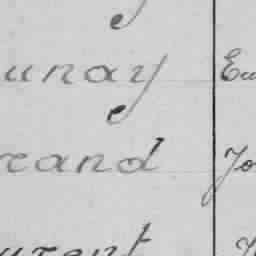 unay Eu
rand Jo
urent